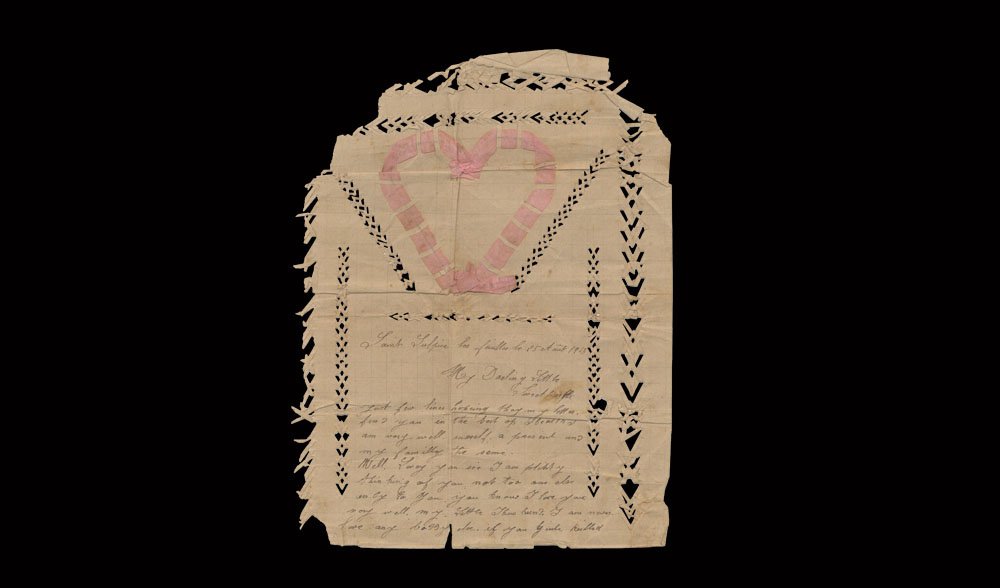 Saint Sulpice les feuilles le 25 Août 19
My Darling Little
Sweetheart
Just few lines hopping they my letter
find you in the best of Health I
am very well myself a present and
my familly the same.
Well, Lucy you sir I am plenty
thinking of you not too any else
only to you you know I love you
very well my Little I am never
love any body else if you